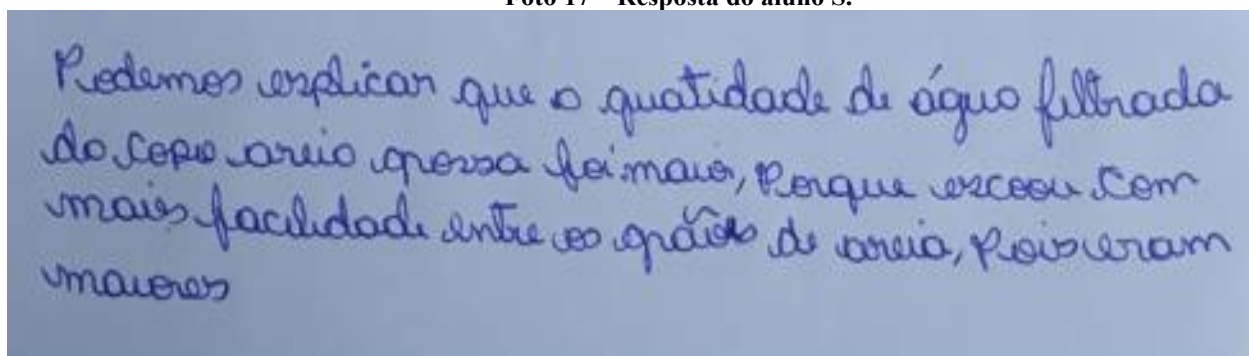 Foto 17 – Resposta do aluno S.
Podemos explicar que a quatidade de água filtrada
do copo areia grossa foi maio, porque escoou com
mais facilidade entre os grãos de areia, pois eram
maiores